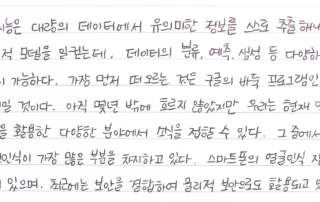 능은 대량의 데이터에서 유의미한 정보를 스스로 추출해내
적 모델을 일컫는데, 데이터의 분류, 예측, 생성 등 다양하
이 가능하다. 가장 먼저 떠오르는 것은 구글의 바둑 프로그램인
일 것이다. 아직 몇년 밖에 흐르지 않았지만 우리는 현재 인
을 활용한 다양한 분야에서 소식을 접할 수 있다. 그 중에서
인식이 가장 많은 부분을 차지하고 있다. 스마트폰의 얼굴인식 잠
이 있으며, 최근에는 보안을 결합하여 물리적 보안으로도 활용되고 있